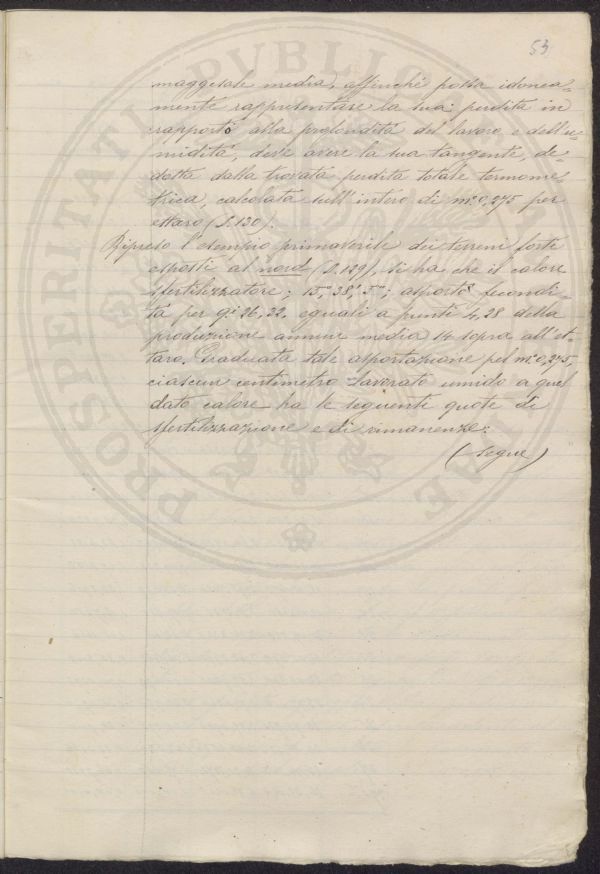 53
maggesale media, affinchè possa idonea-
mente rappresentare la sua perdita in
rapporto alla profondità del lavoro e dell'u-
midità, deve avere la sua tangente, de-
dotta dalla trovata perdita totale termome-
trica, calcolata sull'intero di m.º 0,275 per
ettaro (S. 130).
Ripreso l'esempio primaverile dei terreni forti
esposti al nord (S. 129), si ha che il calore
sfertilizzatore; 15,º 38,' 5,"; asportò fecondi-
tà per q.i 26,22, eguali a punti 4,28 della
produzione annua media 14 sopra all'et-
taro. Graduata tale asportazione pel m.º 0,275,
ciascun centimetro lavorato umido a quel
dato calore ha le seguenti quote di
sfertilizzazione e di rimanenze:
(Segue)
PROSPERITATI PVBLICAE